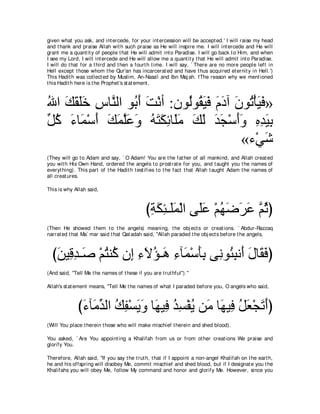 given what you ask, and intercede, for your intercession will be accepted.' I will raise my head
and thank and praise Allah with such praise as He will inspire me. I will intercede and He will
grant me a quantity of people that He will admit into Paradise. I will go back to Him, and when
I see my Lord, I will intercede and He will allow me a quantity that He will admit into Paradise.
I will do that for a third and then a fourth time. I will say, `There are no more people left in
Hell except those whom the Qur'an has incarcerated and have thus acquired eternity in Hell.')
This Hadith was collected by Muslim, An-Nasa'i and Ibn Majah. The reason why we mentioned
this Hadith here is the Prophet's statement,
«فَيَأْتُونَ آدَمَ فَيَقُولُونَ: أَنْتَ أَبُو النَّاسِ خَلَقَكَ اللهُ
بِيَدِهِ وَأَسْجَدَ لَكَ مَلَائِكَتَهُ وَعَلَّمَكَ أَسْمَاءَ كُلِّ
شَيْء»
(They will go to Adam and say, `O Adam! You are the father of all mankind, and Allah created
you with His Own Hand, ordered the angels to prostrate for you, and taught you the names of
everything). This part of the Hadith testifies to the fact that Allah taught Adam the names of
all creatures.
This is why Allah said,
(ثُمَّ عَرَضَهُمْ عَلَى الْمَلَـئِكَةِ)
(Then He showed them to the angels) meaning, the objects or creations. `Abdur-Razzaq
narrated that Ma`mar said that Qatadah said, "Allah paraded the objects before the angels,
(فَقَالَ أَنبِئُونِى بِأَسْمَآءِ هَـؤُلاَءِ إِن كُنتُمْ صَـدِقِينَ)
(And said, "Tell Me the names of these if you are truthful")."
Allah's statement means, "Tell Me the names of what I paraded before you, O angels who said,
(أَتَجْعَلُ فِيهَا مَن يُفْسِدُ فِيهَا وَيَسْفِكُ الدِّمَآءَ)
(Will You place therein those who will make mischief therein and shed blood).
You asked, `Are You appointing a Khalifah from us or from other creations We praise and
glorify You.
Therefore, Allah said, "If you say the truth, that if I appoint a non-angel Khalifah on the earth,
he and his offspring will disobey Me, commit mischief and shed blood, but if I designate you the
Khalifahs you will obey Me, follow My command and honor and glorify Me. However, since you